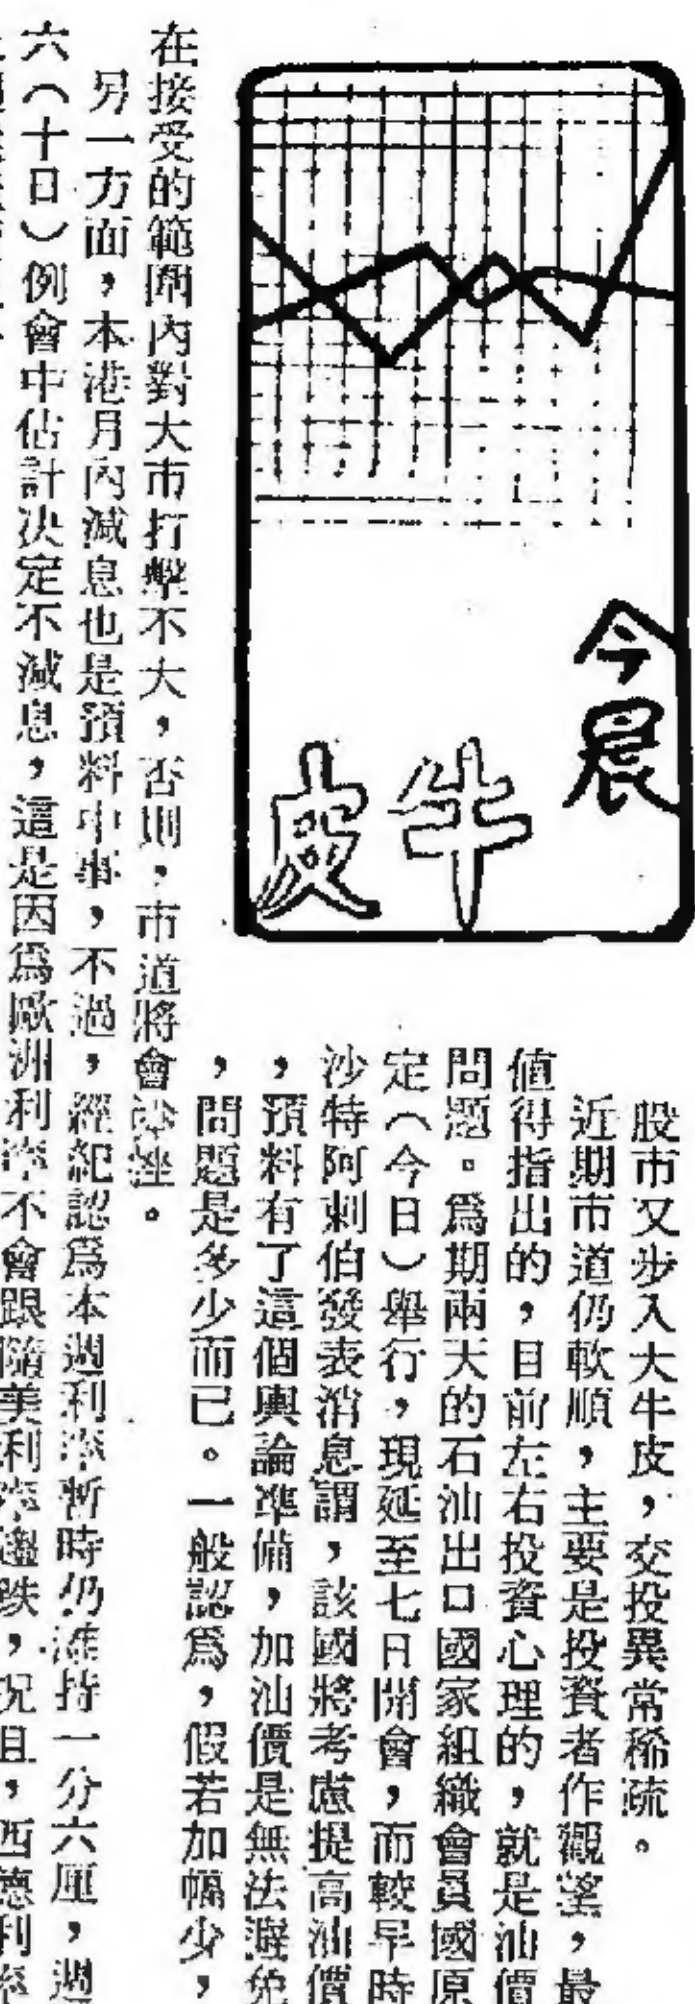 今晨
牛
皮
股市又步入大牛皮，交投異常稀疏。
近期市道仍軟順，主要是投資者作觀望，最
值得指出的，目前左右投資心理的，就是油價
問題。爲期兩天的石油出口國家組織會員國原
定（今日）舉行，現延至七日開會，而較早時
沙特阿剌伯發表消息謂，該國將考慮提高油價
，預料有了這個輿論準備，加油價是無法避免
，問題是多少而已。一般認爲，假若加幅少，
在接受的範圍內對大市打擊不大，否則，市道將會
另一方面，本港月內減息也是預料中事，不過，經紀認爲本週利率暫時仍維持一分六厘，週
六（十日）例會中估計決定不減息，這是因爲歐洲利率不會跟隨美利率趨跌，况且，西德利率